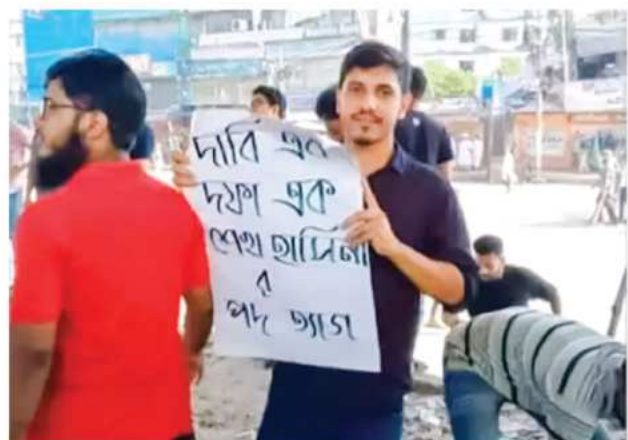 দাবি এক
দফা এক
শেখ হাসিনা
র
পদ ত্যাগ